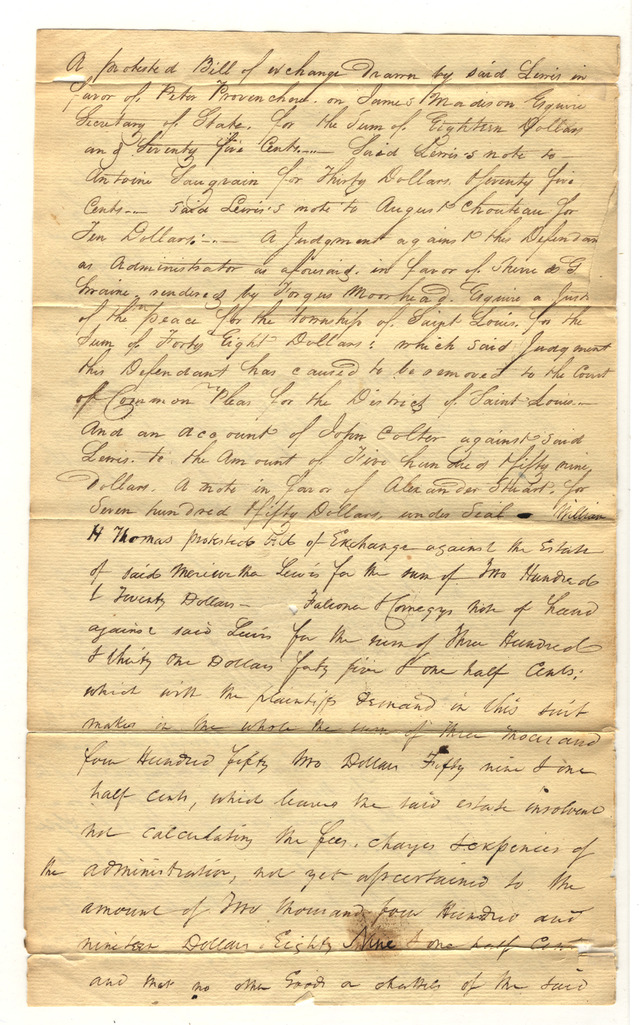 A protested Bill of exchange Drawn by said Lewis in
favor of. Peter Provenchere. on James Madison Esquire
Secretary of State. for the Sum of Eighteen Dollars
and Seventy five Cents.— Said Lewis's note to
Antoine Saugrain for Thirty Dollars, & seventy five
Cents— said Lewis's note to August Chouteau for
Ten Dollars.— A Judgment against this Defendan
as Administrator as aforesaid. in favor of
rendered by Fergus Moorhead. Esquire a Just
of the peace for the township of. Saint Louis. for the
Sum of Forty Eight Dollars; which said Judgment
this Defendant has caused to be removed to the Court
of Common Pleas for the District of Saint Louis—
And an account of John Colter against said
Lewis. to the Amount of Five hundred & fifty nine
Dollars. A note in favor of Alexander Stuart, for
Seven hundred & fifty Dollars, under Seal William
H Thomas protested Bill of Exchange against the Estate
of said Meriwether Lewis for the sum of Two Hundred
& Twenty Dollars— Falconer & Comegys Note of hand
against said Lewis for the sum of Three Hundred
& thirty one Dollars forty five & one half Cents;
which with the plaintiffs Demand in this suit
makes in the whole the sum of three thousand
four Hundred fifty two Dollars Fifty nine & one
half cents, which leaves the said estate insolvent
not calculating the fees. charges & expences of
the administration, not yet assertained to the
amount of Two thousand four Hundred and
nineteen Dollars Eighty Nine & one half Cents
and that no other Goods or chattels of the said